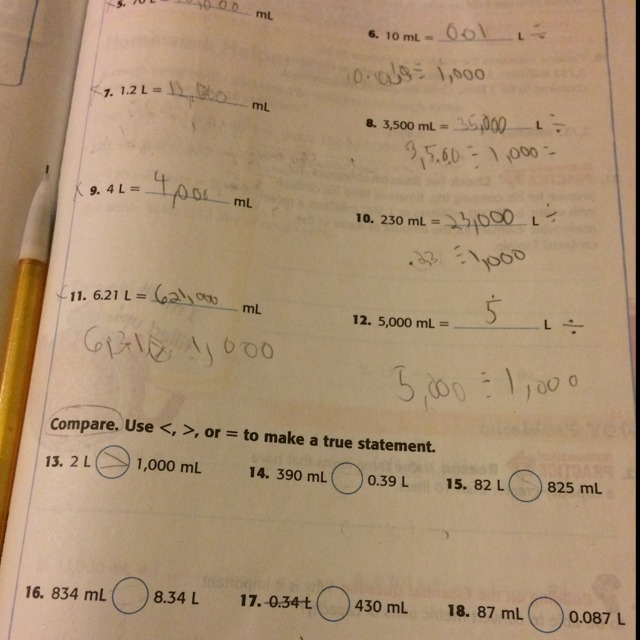 mL
6. 10 mL = 001 L ÷
÷ 1,000
7. 1.2 L = mL
8. 3,500 mL = 35,000 L ÷
3,5.0.0 ÷ 1,000 =
9. 4 L = 4,000 mL
10. 230 mL = 23,000 L ÷
.23 ÷ 1,000
11. 6.21 L = 621,000 mL
1,000
12. 5,000 mL = 5 L ÷
5,000 ÷ 1,000
Compare. Use <, >, or = to make a true statement.
13. 2 L > 1,000 mL
14. 390 mL 0.39 L
15. 82 L 825 mL
16. 834 mL 8.34 L
17. 0.34 L 430 mL
18. 87 mL 0.087 L